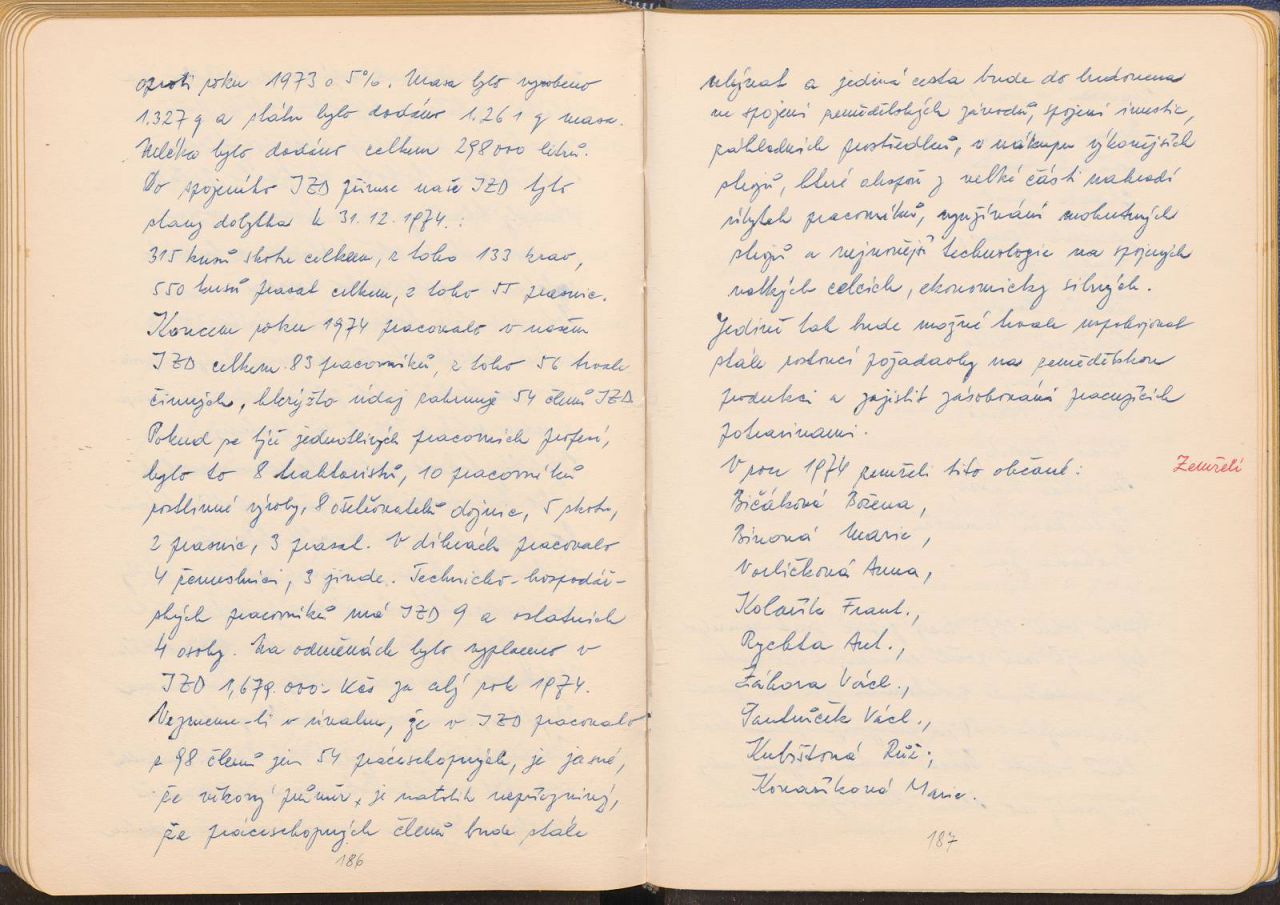 oproti roku 1973 o 5%. Masa bylo vyrobeno
1.327 q a státu bylo dodáno 1.261 q masa.
Mléka bylo dodáno celkem 298 000 litrů.
Do spojeného JZD přinese naše JZD tyto
stavy dobytka k 31. 12. 1974.:
315 kusů skotu celkem, z toho 133 krav,
550 kusů prasat celkem, z toho 55 prasnic.
Koncem roku 1974 pracovalo v našem
JZD celkem 83 pracovníků, z toho 56 trvale
činných, kterýžto údaj zahrnuje 54 členů JZD.
Pokud se týče jednotlivých pracovních profesí,
bylo to 8 traktoristů, 10 pracovníků
rostlinné výroby, 8 ošetřovatelů dojnic, 5 skotu,
2 prasnic, 3 prasat. V dílnách pracovalo
4 řemeslníci, 3 jinde. Technicko-hospodář-
ských pracovníků má JZD 9 a ostatních
4 osoby. Na odměnách bylo vyplaceno v
JZD 1,679.000.- Kčs za celý rok 1974.
Vezmeme-li v úvahu, že v JZD pracovalo
z 98 členů jen 54 práceschopných, je jasné,
že věkový průměr, je natolik nepříznivý,
že práceschopných členů bude stále
186
ubývat a jediná cesta bude do budoucna
ve spojení zemědělských závodů, spojení investic,
základních prostředků, v nákupu výkonějších
strojů, které alespoň z velké části nahradí
úbytek pracovníků, využívání mohutných
strojů a nejnovější technologie na spojených
velkých celcích, ekonomicky silných.
Jedině tak bude možné trvale uspokojovat
stále rostoucí požadavky na zemědělskou
produkci a zajistit zásobování pracujících
potravinami.
V roce 1974 zemřeli tito občané:
Zemřelí
Bičáková Božena,
Bínová Marie,
Vorlíčková Anna,
Kolařík Frant.,
Rychta Ant.,
Záhora Václ.,
Václ.,
Kubištová Růž.,
Kovaříková Marie.
187